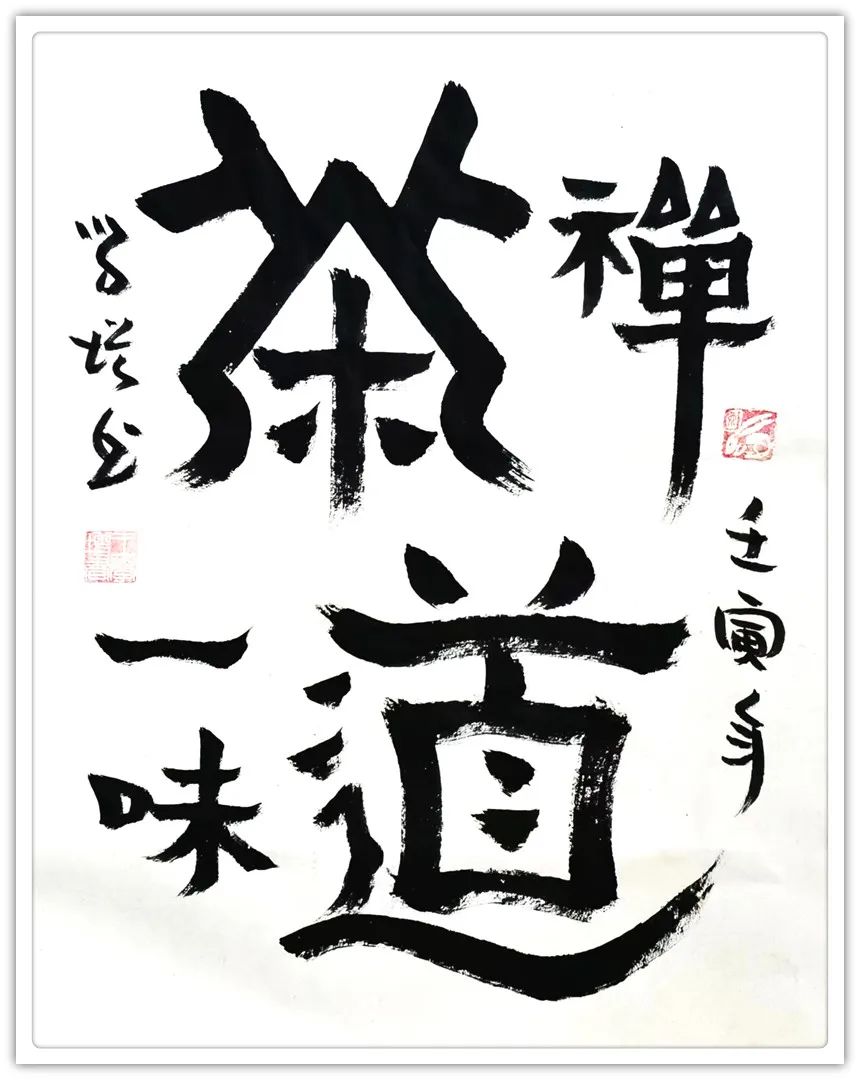 禪
茶
道
一味
壬寅年
学
书